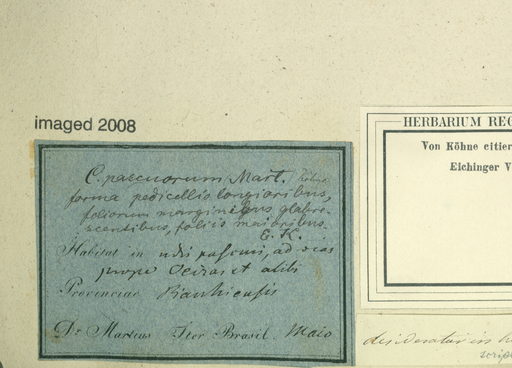 imaged 2008
C. pascuorum Mart.
forma pedicellis longioribus,
foliorum marginibus glabre-
scentibus, foliis majoribus.
E. K.
Habitat in pascuis, ad
prope Oeiras et alibi
Provinciae Piauhiensis
Dr. Martius Iter Brasil. Maio
HERBARIUM REG
Von Köhne citier
Eichinger V
desideratur in
scrips